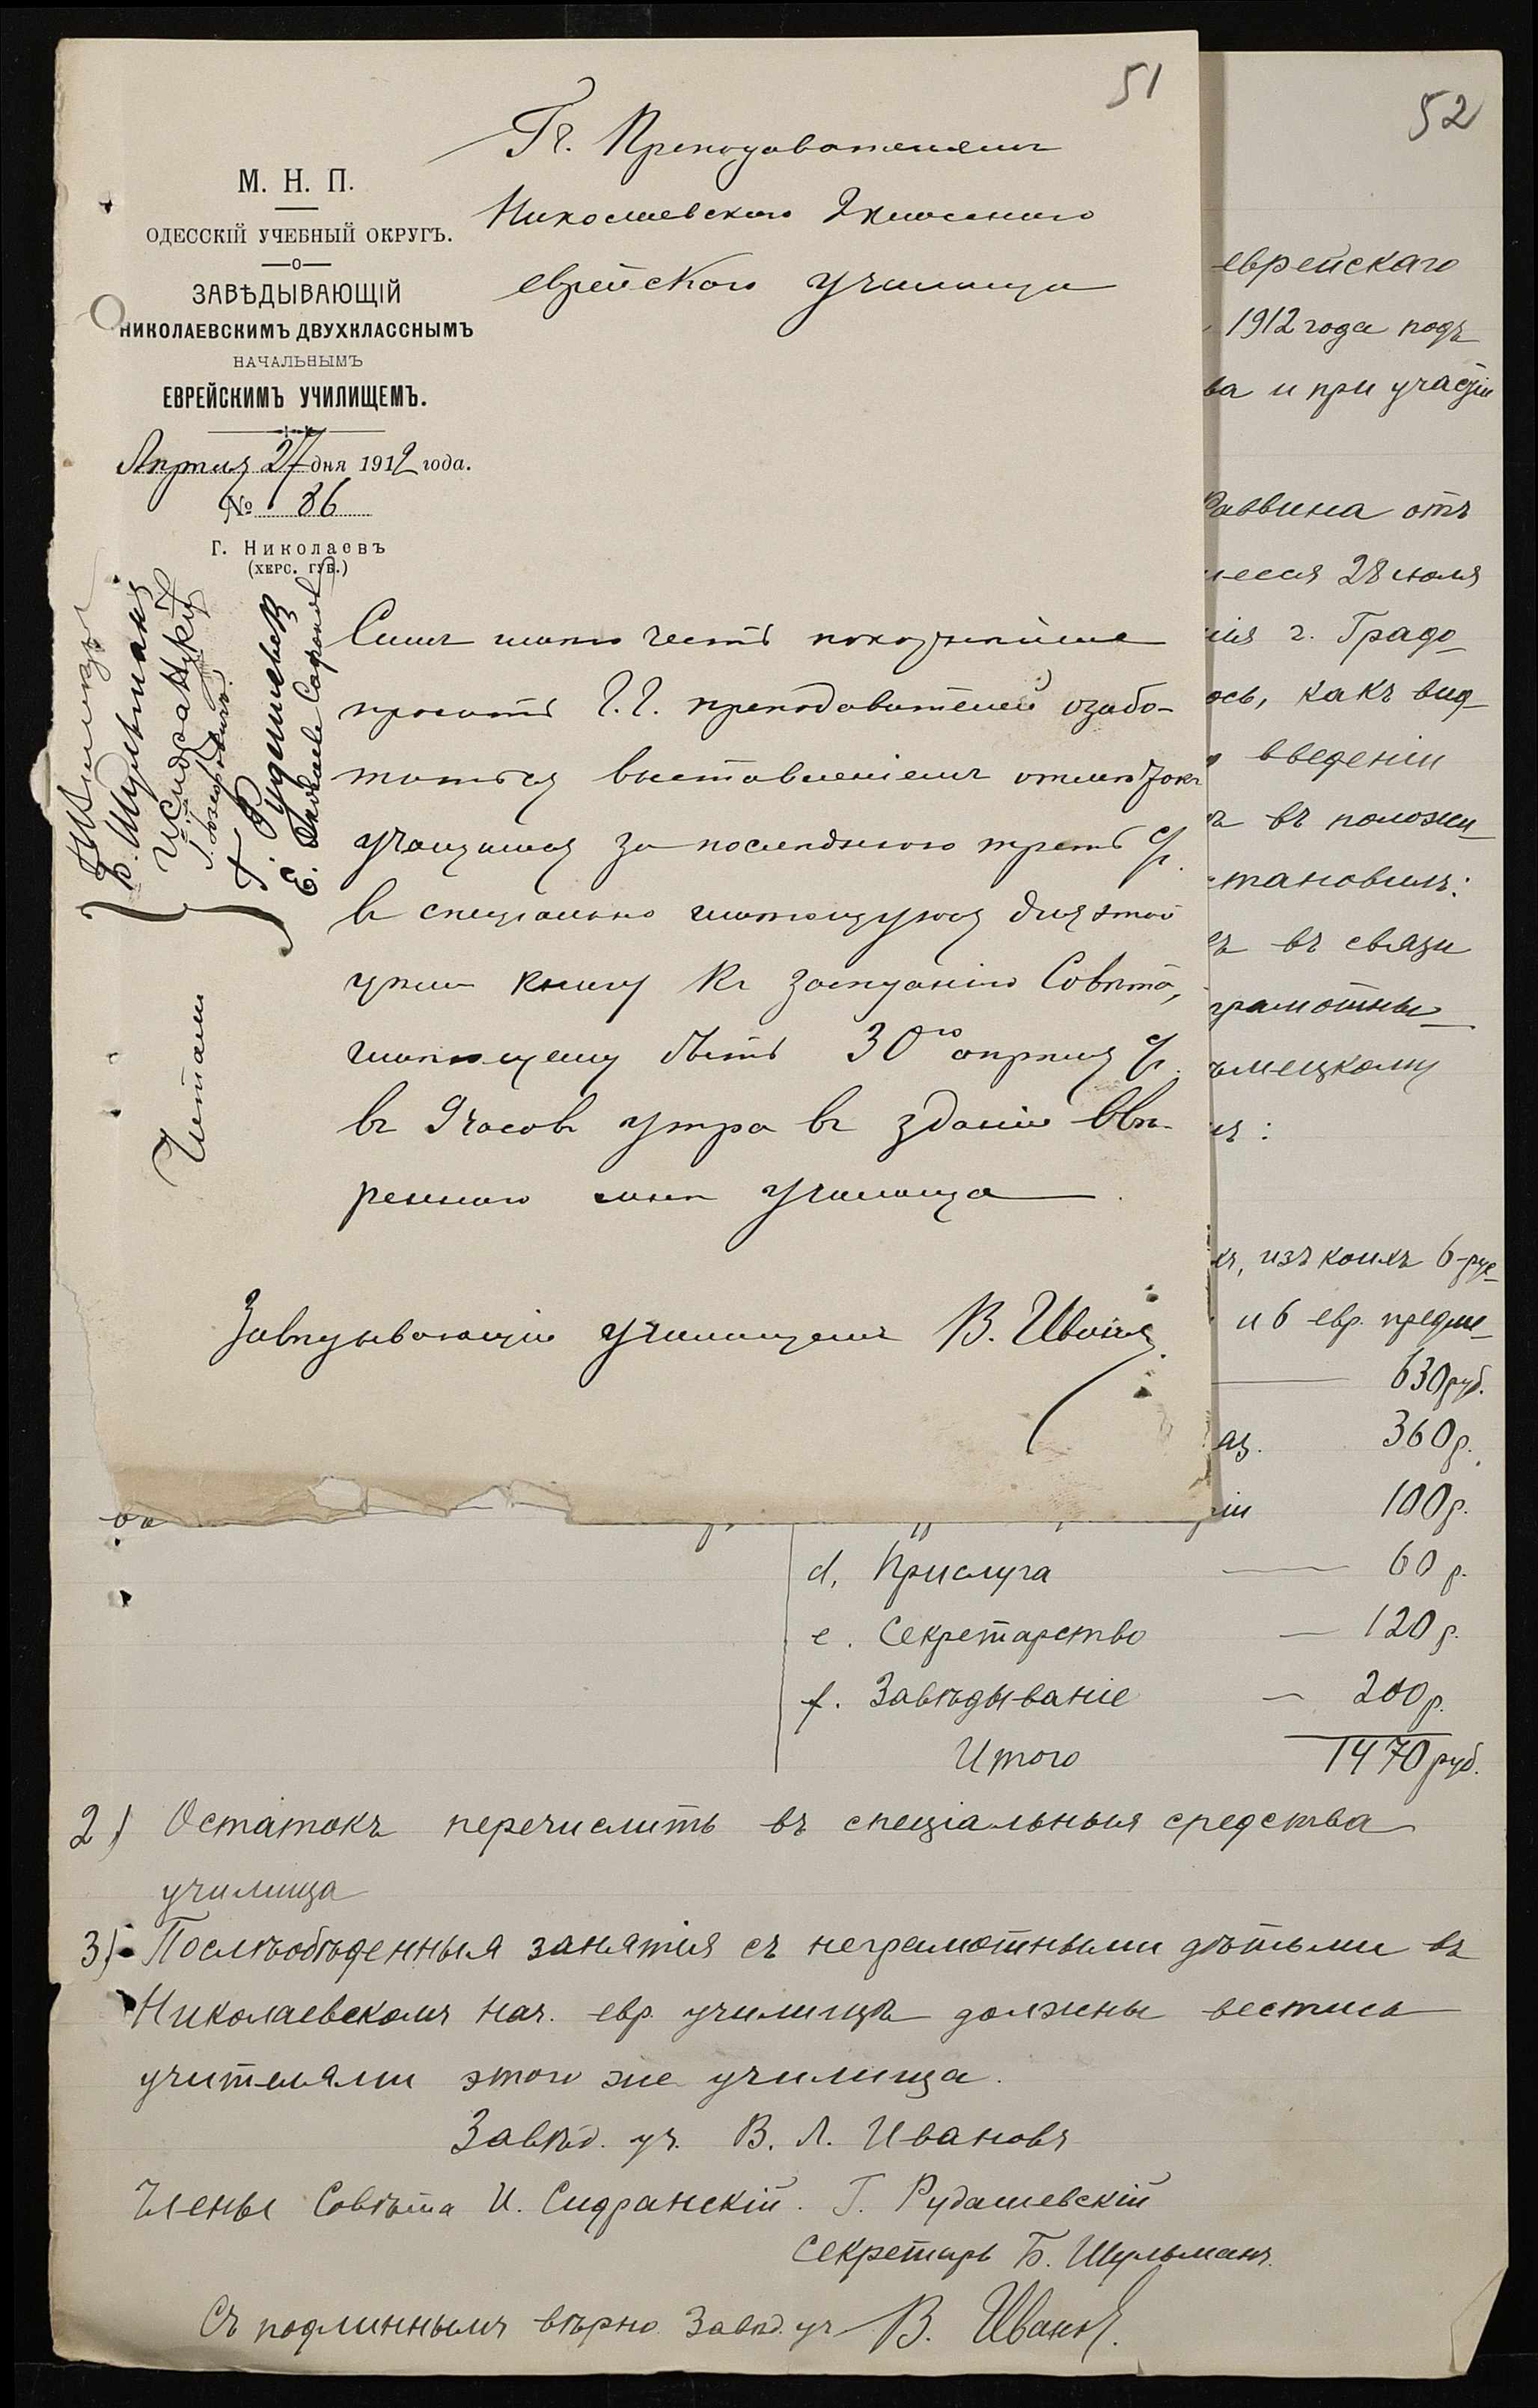 51
Гг. Преподавателямъ
Николаевскаго 2хкласснаго
еврейскаго училища
М. Н. П.
ОДЕССКІЙ УЧЕБНЫЙ ОКРУГЪ.
ЗАВѢДЫВАЮЩІЙ
НИКОЛАЕВСКИМЪ ДВУХКЛАССНЫМЪ
НАЧАЛЬНЫМЪ
ЕВРЕЙСКИМЪ УЧИЛИЩЕМЪ.
Апрѣля 27 дня 1912 года.
№ 86
Г. Николаевъ
(ХЕРС. ГУБ.)
Симъ имѣю честь покорнѣйше
просить Г.г. преподавателей озабо-
титься выставленіемъ отмѣтокъ
учащимся за послѣднюю треть с/г.
въ спеціально имѣющуюся для этой
цѣли книгу къ засѣданію Совѣта,
имѣющему быть 30го апрѣля с/г.
въ 9 часовъ утра въ зданіи ввѣ-
реннаго мнѣ училища.
Завѣдывающій училищемъ В. Ивановъ
Читали
Б. Шульманъ
И. Сидранскій
Г. Рудашевскій
Е.
52
еврейскаго
1912 года подъ
ва и при участіи
Раввина отъ
28 іюля
нія г. Градо-
ось, какъ вид-
введеніи
въ положи-
становилъ:
въ связи
грамотны-
ѣмецкому
:
изъ коихъ 6-рус-
и 6 евр. предме-
630 руб.
360 р.
100 р.
d. Прислуга — 60 р.
e. Секретарство — 120 р.
f. Завѣдываніе — 200 р.
Итого 1470 руб.
2) Остатокъ перечислить въ спеціальныя средства
училища
3) Послѣобѣденныя занятія съ неграмотными дѣтьми въ
Николаевскомъ нач. евр. училищѣ должны вестись
учителями этого же училища.
Завѣд. уч. В. Л. Ивановъ
Члены Совѣта И. Сидранскій. Г. Рудашевскій
Секретарь Б. Шульманъ.
Съ подлиннымъ вѣрно Завѣд. уч. В. Ивановъ.